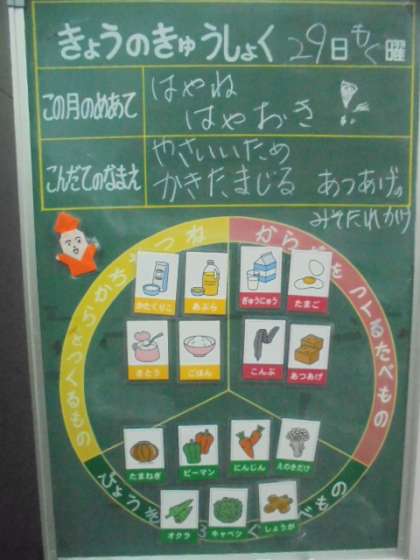 きょうのきゅうしょく 29日もく曜
この月のめあて
はやね
はやおき
こんだてのなまえ
やさいいため
かきたまじる あつあげの
みそたれかけ
ねつやちからをつくるもの
からだをつくるたべもの
かたくりこ
あぶら
ぎゅうにゅう
たまご
さとう
ごはん
こんぶ
あつあげ
たまねぎ
ピーマン
にんじん
えのきだけ
オクラ
キャベツ
しょうが